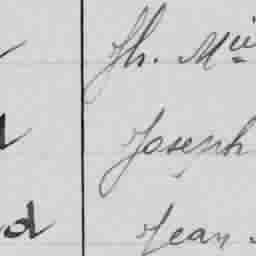 Jh. Mie
Joseph
Jean